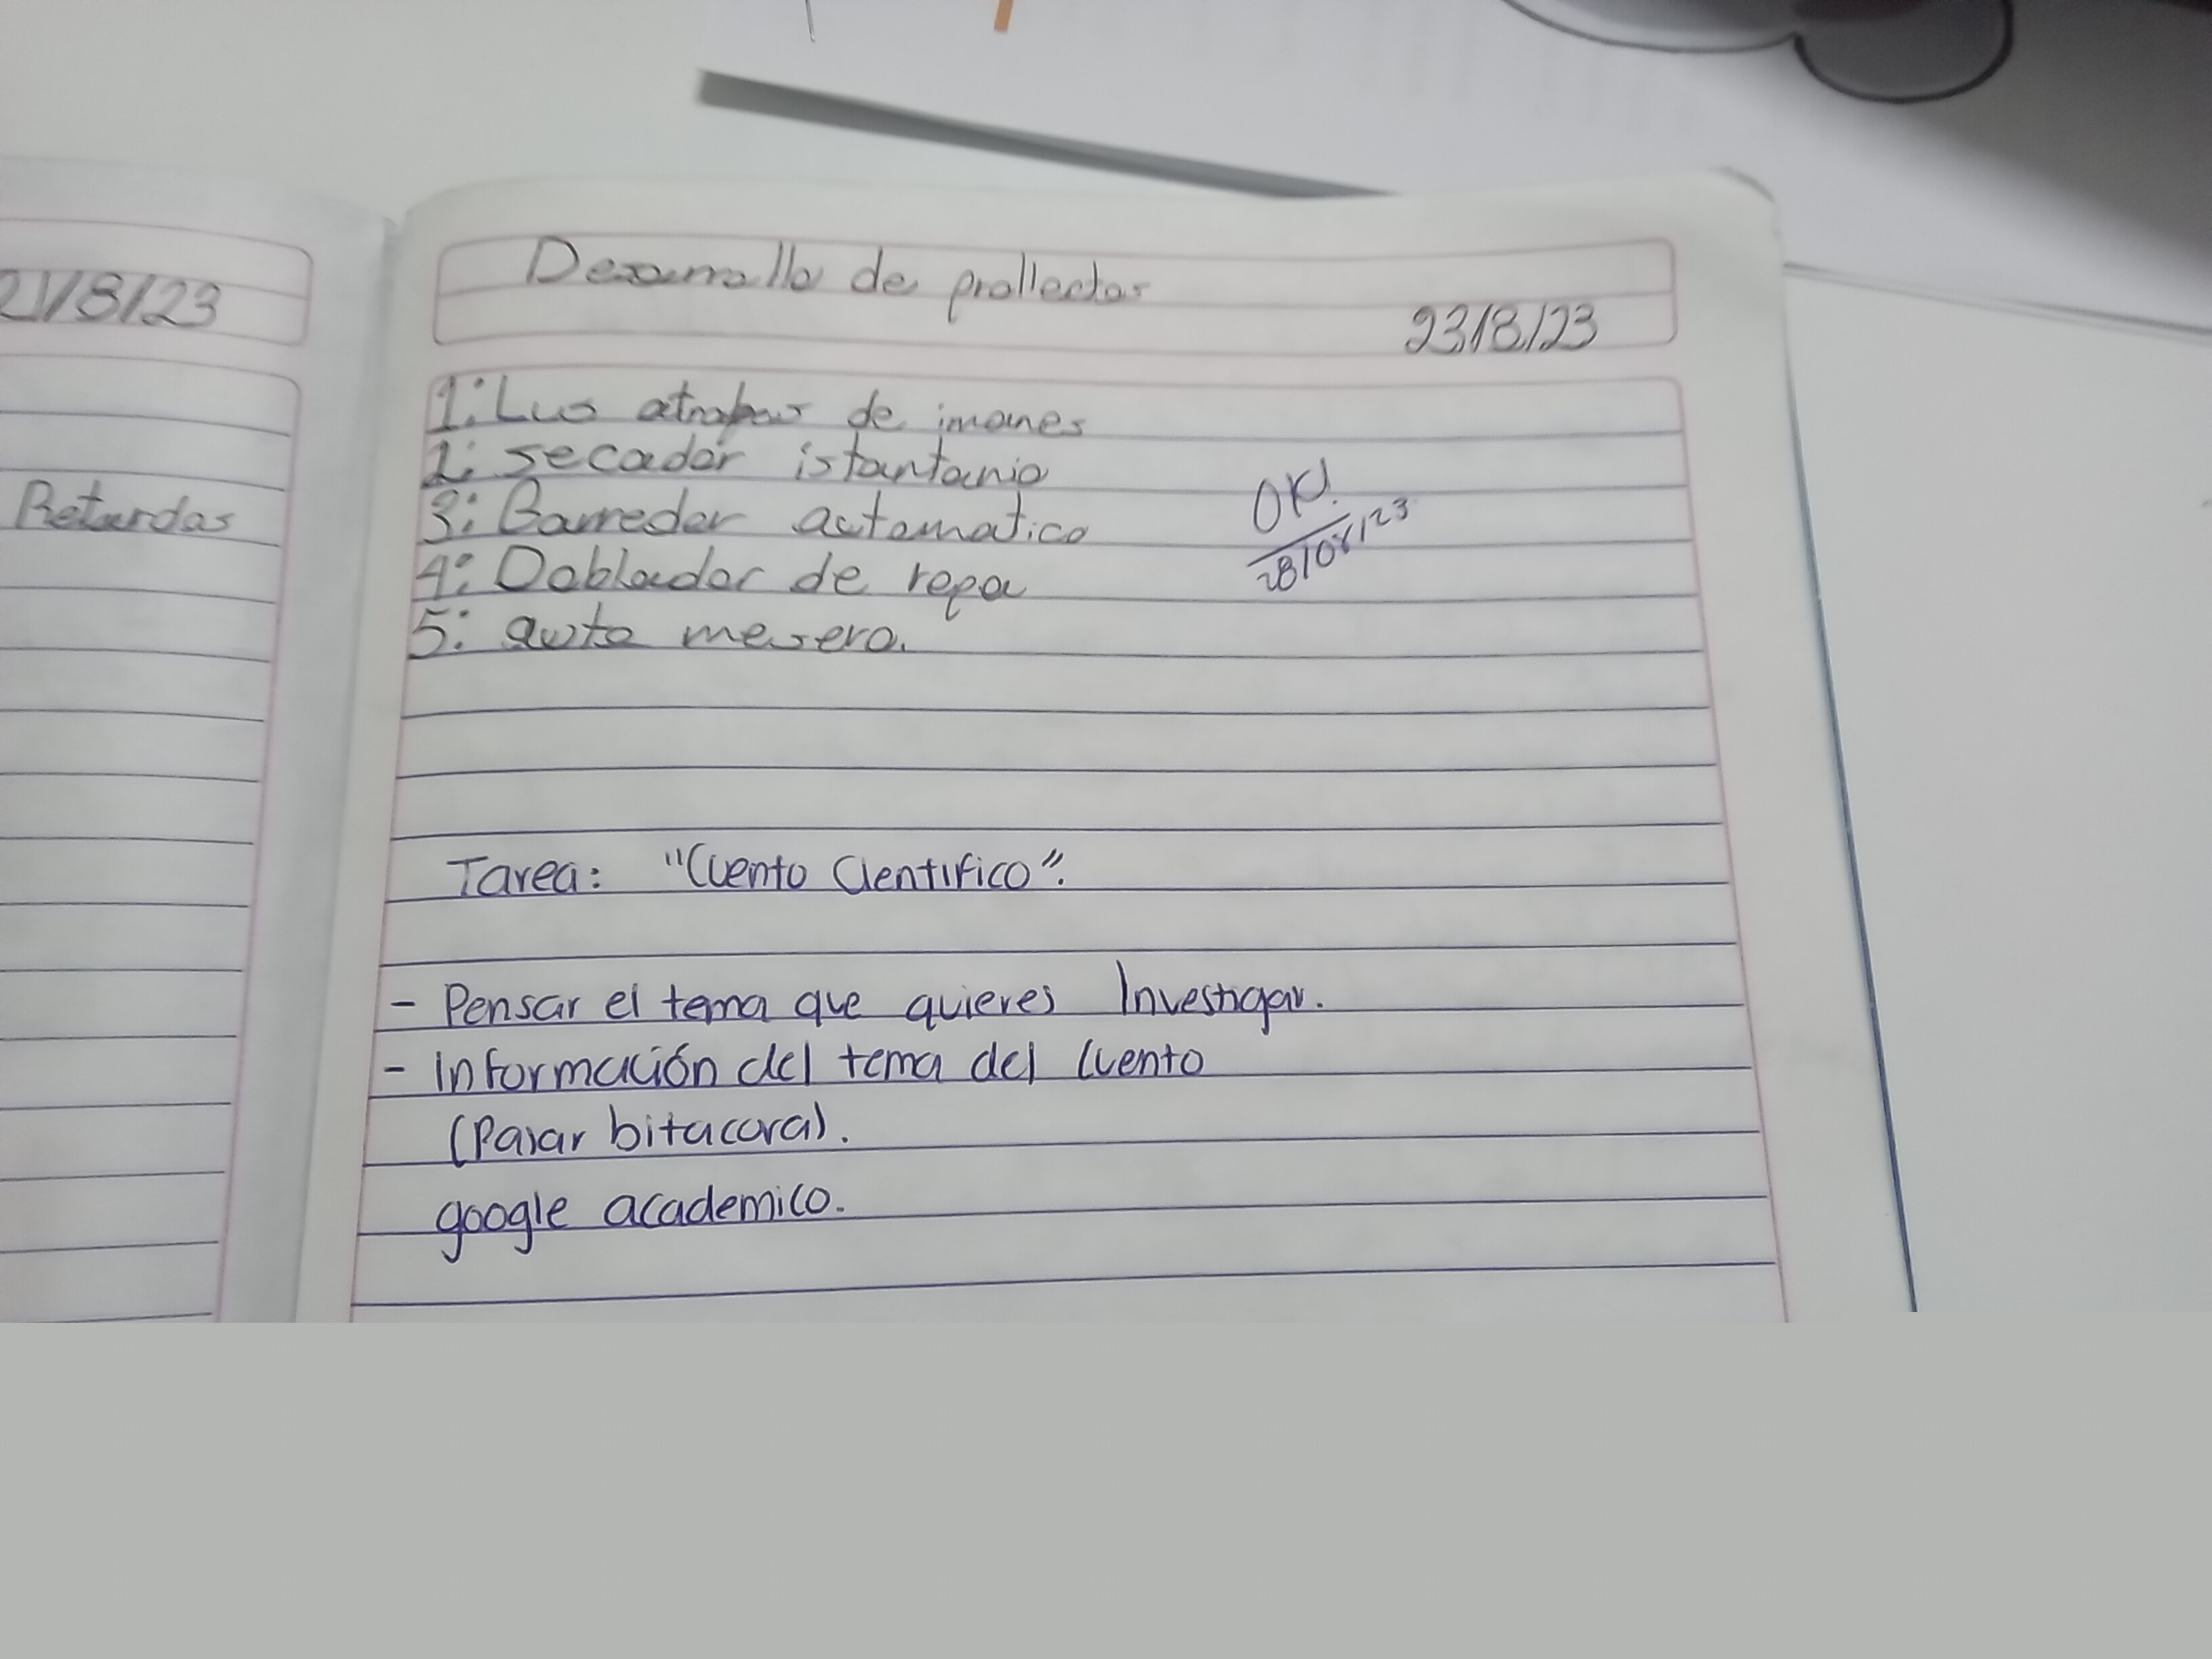 21/8/23
Retardas
Desarrollo de prollectos
23/8/23
1: Lus atrabas de imanes
2: secador istantanio
3: Barredor automatico
4: Doblador de ropa
5: auto mesero.
OK!
28/08/23
Tarea: "Cuento Cientifico".
- Pensar el tema que quieres Investigar.
- Información del tema del Cuento
(Pasar bitacora).
google academico.